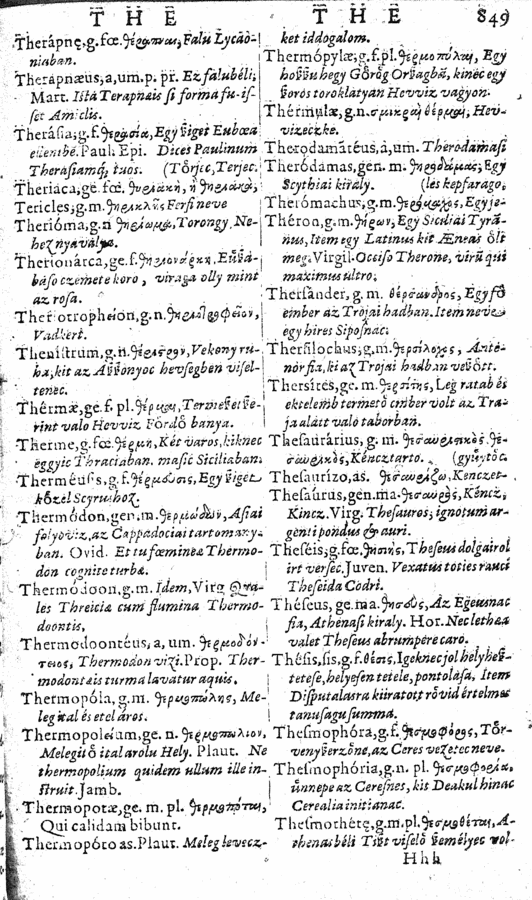 T H E
T H E 849
Therápnę, g. fœ. θεράπναι, Falu Lycáo-
niaban.
Therapnæus, a, um. p. pr. Ez falubéli,
Mart. Istá Terapnæis si forma fu-is-
set Amiclis.
Therásia, g. f. θηρασία, Egy ßiget Eubœa
ellenbé. Paul. Epi. Dices Paulinum
Therasiamq, tuos. (Tőrjec, Terjec.
Theriáca, gę. fœ. θηριακὴ, ἡ θηριακὰ,
Tericles, g. m. θηρικλῆς Ferfi neve
Therióma, g. n. θηρίωμα, Torongy, Ne-
hez nyavalya.
Therionárca, ge. f. θηριονάρκη,
báso czemete koro, viraga olly mint
az rosa.
Theriotropheion, g. n. θηριοτροφεῖον,
Vadkert.
Thenistrum, g. n. θέριστρον, Vekony ru-
ha, kit az Aßßonyoc hevségben visel-
tenec.
Thérmæ, ge. f. pl. θέρμαι, Termeßet ße-
rint valo Hevviz Fördő banya.
Therme, g. fœ. θέρμη, Két varos, kiknec
eggyic Thraciaban. masic Siciliaban.
Therméusis, g. f. Egy ßiget
kőzel Scyrushoz.
Thermódon, gen. m. θερμώδων, Asiai
folyoviz, az Cappadociai tartomany-
ban. Ovid. Et tu fœmineæ Thermo-
don cognite turbæ.
Thermódoon, g. m. Idem, Virg. Qua-
les Threiciæ cum flumina Thermo-
doontis,
Thermodoontéus, a, um. θερμοδόν-
τειος, Thermodon vizi. Prop. Ther-
modontæis turma lavatur aquis.
Thermopóla, g. m. θερμοπώλης, Me-
leg ital és etel áros.
Thermopolęium, ge. n. θερμοπώλιον,
Melegitő ital arolu Hely. Plaut. Ne
thermopolium quidem ullum ille in-
struit. Jamb.
Thermopotæ, ge. m. pl. θερμοπόται,
Qui calidam bibunt.
Thermopóto as. Plaut. Meleg levecz-
ket iddogalom.
Thermópylæ, g. f. pl. θερμοπύλαι, Egy
hoßßu hegy Gőrőg Orßagbā, kinec egy
ßoros toroklatyan Hevviz vagyon.
Thérmulæ, g. n. σμικραὶ θέρμαι, Hev-
vizeczke.
Therodamatéus, a, um. Therodamasi
Theródamas, gen. m. θηροδάμας, Egy
Scythiai kiraly. (les kepfarago.
Therómachus, g. m. θηρόμαχος, Egy je-
Théron, g. m. θήρων, Egy Siciliai Tyrā-
nus, Item egy Latinus kit Æneas őlt
meg. Virgil. Occiso Therone, virū qui
maximus ultro.
Thersánder, g. m. θέρσανδρος, Egy fő
ember az Trójai hadban. Item neve
egy hires Siposnac.
Thersilochus, g. m. θερσίλοχος, Ante-
nór fia, ki az Trojai hadban veßőtt.
Thersites, ge. m. θερσίτης, Leg rutab és
ektelemb termető ember volt az Tro-
ja alatt való taborban.
Thesaurárius, g. m.
Kencztarto. (gyüytőc.
Thesaurízo, as. θησαυρίζω, Kenczet-
Thesaurus, gen. ma. θησαυρὸς, Kéncz,
Kincz. Virg. Thesauros, ignotum ar-
genti pondus & auri.
Theséis, g. fœ. θησηὶς, Theseus dolgairol
irt versec. Juven. Vexatus toties rauci
Theseida Codri.
Théseus, ge. ma. θησεὺς, Az Egeusnac
fia, Athenasi kiraly. Hor. Nec lethæa
valet Theseus abrumpere caro.
Thésis, sis, g. f. θέσις, Igeknec jol helyhez-
tetese, helyesen tetele, pontolása, Item
Disputalasra kiiratott rővid értelmes
tanusagu summa.
Thesmophóra, g. f. θεσμοφόρος, Tőr-
veny ßerzőne, az Ceres vezetec neve.
Thesmophória, g. n. pl. θεσμοφορία,
ünnepe az Ceresnec, kit Deakul hinac
Cerealia initianac.
Thesmothétę, g. m. pl. θεσμοθέται, A-
thenasbéli Tißt viselő ßemélyec vol-
H h h